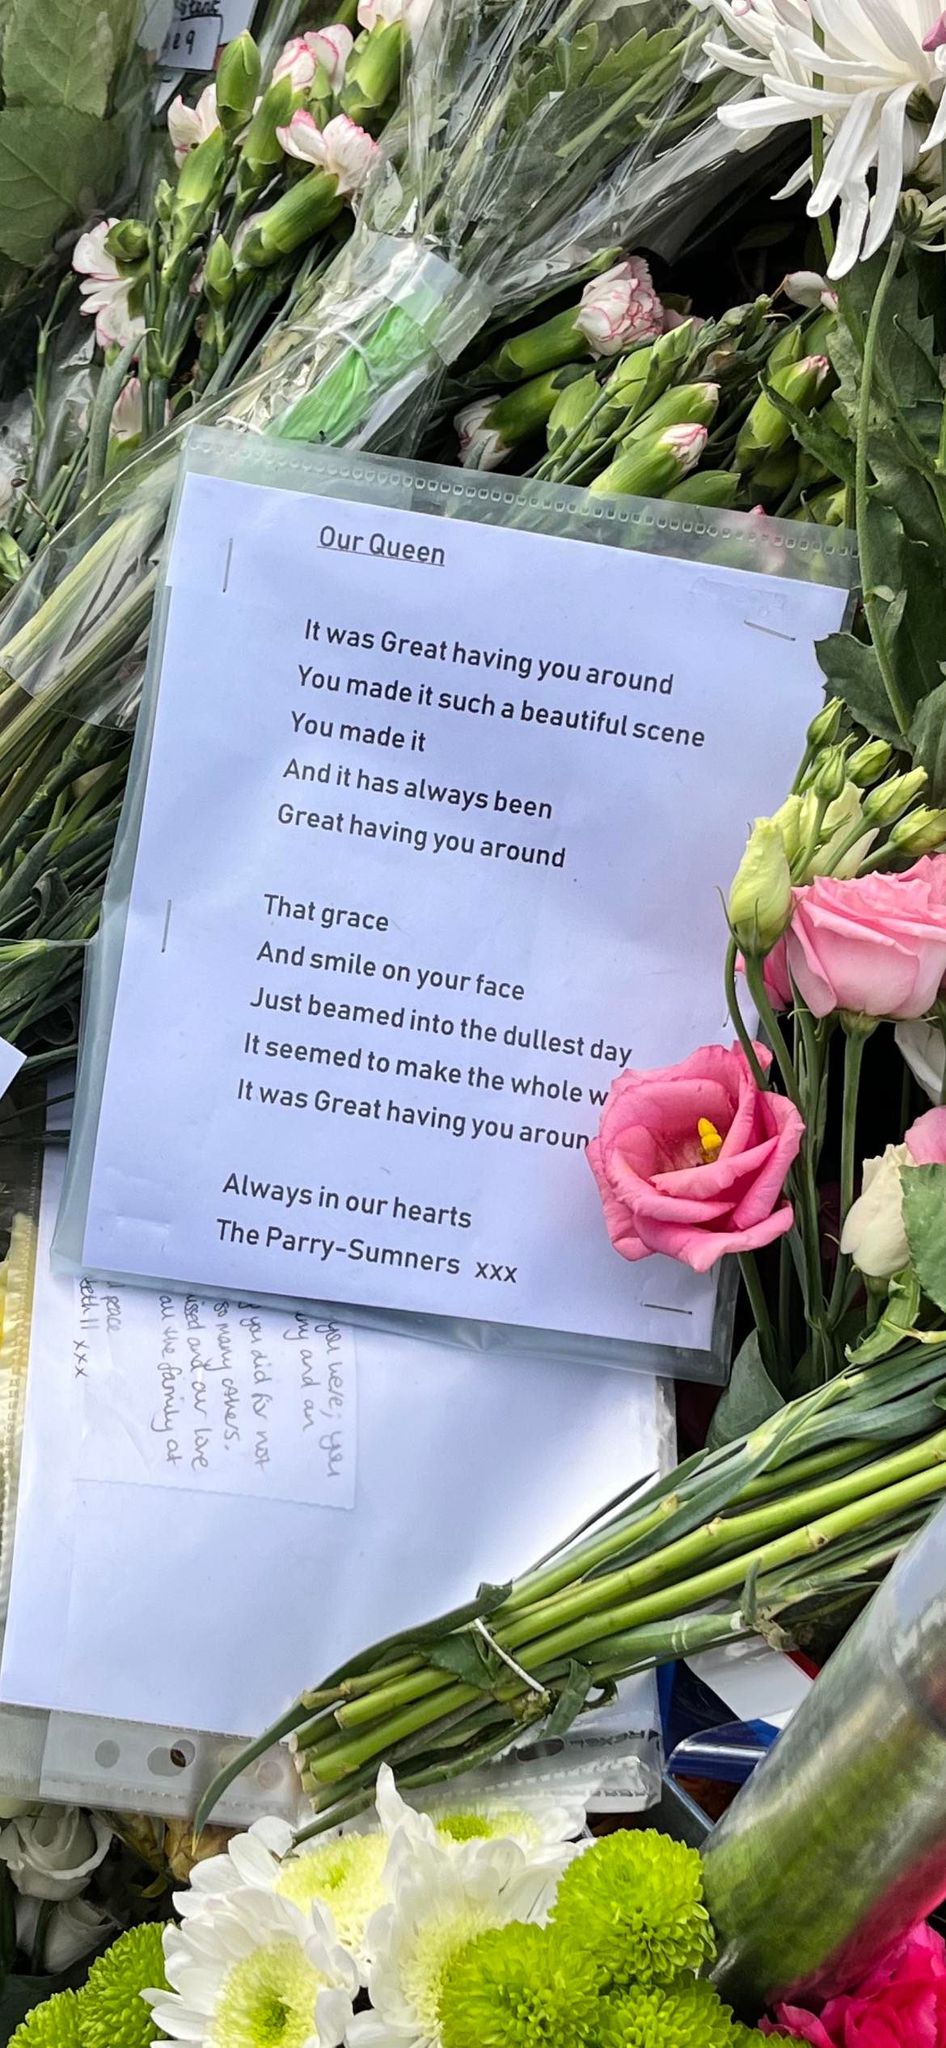 Our Queen
It was Great having you around
You made it such a beautiful scene
You made it
And it has always been
Great having you around
That grace
And smile on your face
Just beamed into the dullest day
It seemed to make the whole
It was Great having you
Always in our hearts
The Parry-Sumners xxx
you were; you
and an
you did for not
so many others.
and our love
all the family at
peace
xxx
REXEL